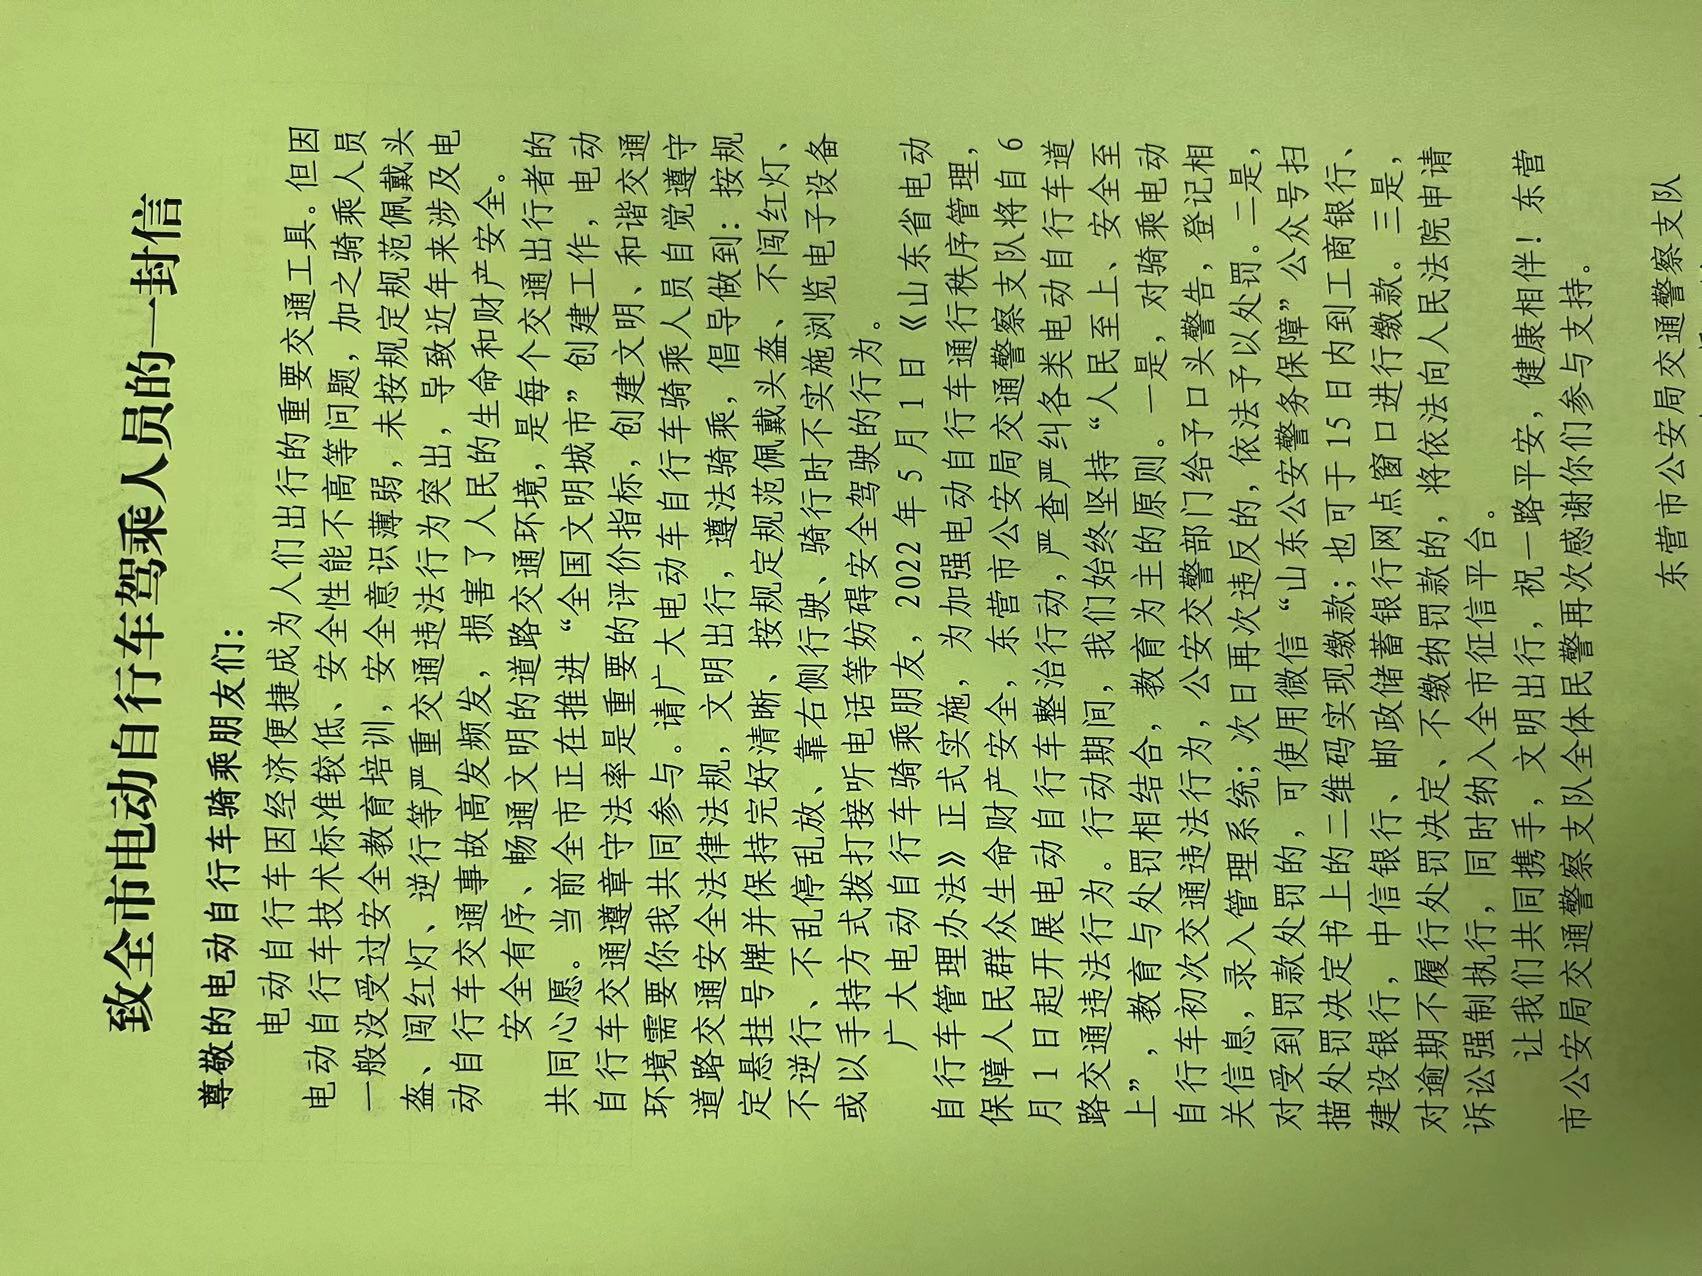 致全市电动自行车驾乘人员的一封信
尊敬的电动自行车骑乘朋友们：
电动自行车因经济便捷成为人们出行的重要交通工具。但因
电动自行车技术标准较低、安全性能不高等问题，加之骑乘人员
一般没受过安全教育培训，安全意识薄弱，未按规定规范佩戴头
盔、闯红灯、逆行等严重交通违法行为突出，导致近年来涉及电
动自行车交通事故高发频发，损害了人民的生命和财产安全。
安全有序、畅通文明的道路交通环境，是每个交通出行者的
共同心愿。当前全市正在推进“全国文明城市”创建工作，电动
自行车交通遵章守法率是重要的评价指标，创建文明、和谐交通
环境需要你我共同参与。请广大电动车自行车骑乘人员自觉遵守
道路交通安全法律法规，文明出行，遵法骑乘，倡导做到：按规
定悬挂号牌并保持完好清晰、按规定规范佩戴头盔、不闯红灯、
不逆行、不乱停乱放、靠右侧行驶、骑行时不实施浏览电子设备
或以手持方式拨打接听电话等妨碍安全驾驶的行为。
广大电动自行车骑乘朋友，2022年5月1日《山东省电动
自行车管理办法》正式实施，为加强电动自行车通行秩序管理，
保障人民群众生命财产安全，东营市公安局交通警察支队将自6
月1日起开展电动自行车整治行动，严查严纠各类电动自行车道
路交通违法行为。行动期间，我们始终坚持“人民至上、安全至
上”，教育与处罚相结合，教育为主的原则。一是，对骑乘电动
自行车初次交通违法行为，公安交警部门给予口头警告，登记相
关信息，录入管理系统；次日再次违反的，依法予以处罚。二是，
对受到罚款处罚的，可使用微信“山东公安警务保障”公众号扫
描处罚决定书上的二维码实现缴款；也可于15日内到工商银行、
建设银行，中信银行、邮政储蓄银行网点窗口进行缴款。三是，
对逾期不履行处罚决定、不缴纳罚款的，将依法向人民法院申请
诉讼强制执行，同时纳入全市征信平台。
让我们共同携手，文明出行，祝一路平安，健康相伴！东营
市公安局交通警察支队全体民警再次感谢你们参与支持。
东营市公安局交通警察支队